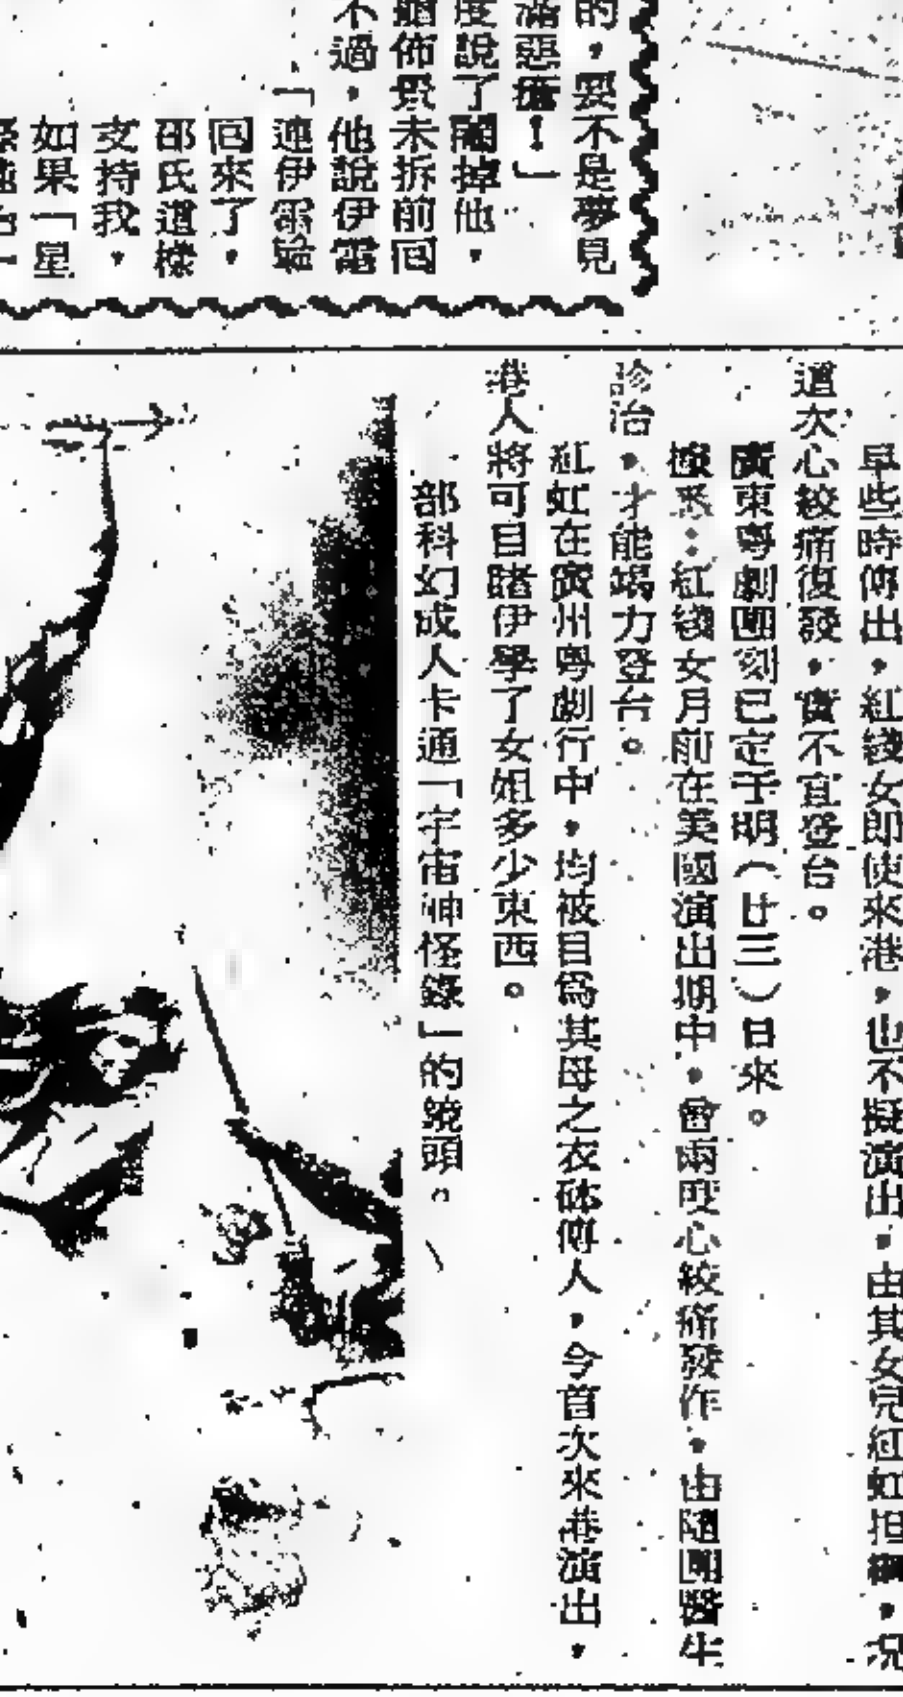 的，要不是夢見
滿惡瘡！」
度說了關掉他，
佈景未拆前回
不過，他說伊電
「連伊電輪
回來了，
邵氏這樣
支持我，
如果「星
早些時傳出，紅綫女即使來港，也不擬演出，由其女兒紅虹担綱，况
這次心絞痛復發，實不宜登台。
廣東粵劇團刻已定于明（廿三）日來。
據悉：紅綫女月前在美國演出期中，曾兩度心絞痛發作，由隨團醫生
診治，才能竭力登台。
紅虹在廣州粵劇行中，均被目爲其母之衣砵傳人，今首次來港演出，
港人將可目睹伊學了女姐多少東西。
部科幻成人卡通「宇宙神怪錄」的鏡頭。